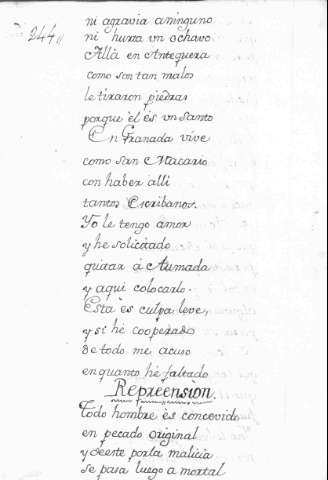 244
ni agravia a ninguno
ni hurta vn ochavo
Allà en Antequera
como son tan malos
le tiraron piedras
porque èl és vn santo
En Granada vive
como san Macario
con haber alli
tantos Escribanos.
Yo le tengo amor
y he solicitado
quitar á Ahumada
y aqui colocarlo.
Esta ès culpa leve,
y si hè cooperado
de todo me acuso
en quanto hè faltado
Reprension.
Todo hombre ès concevido
en pecado original
y de este por la malicia
se pasa luego a mortal